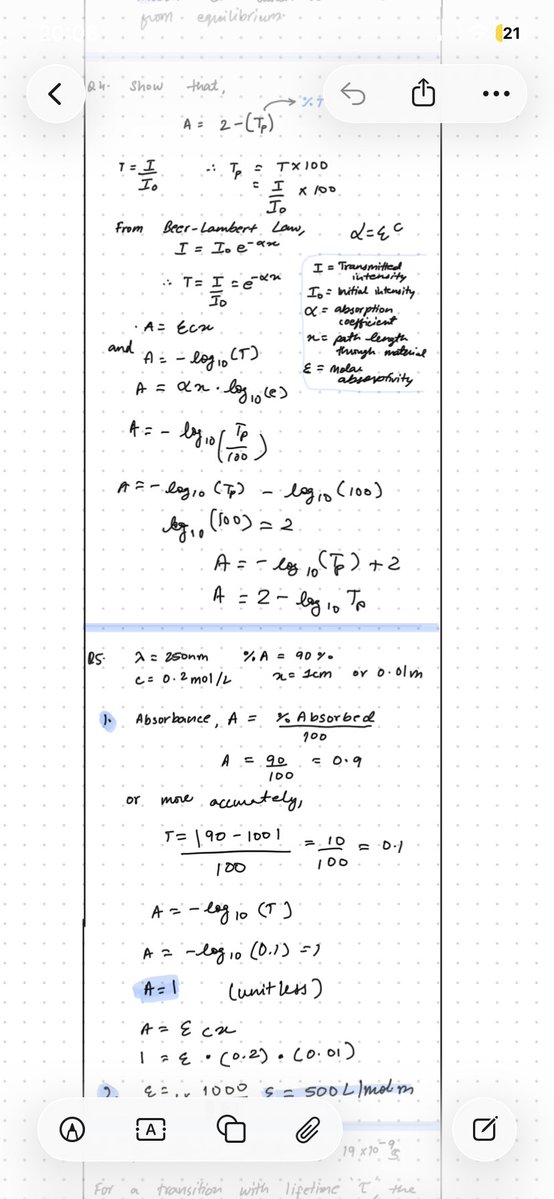 from equilibrium.
21
Q4. Show that,
A = 2-(Tp) → %T
T = I/I₀ ∴ Tp = T×100
= I/I₀ × 100
From Beer-Lambert Law, α=ε c
I = I₀ e^-αx
∴ T = I/I₀ = e^-αx
I = Transmitted intensity
I₀ = initial intensity
α = absorption coefficient
x = path length through material
ε = molar absorptivity
· A = εcx
and A = - log₁₀ (T)
A = αx · log₁₀ (e)
A = - log₁₀ (Tp/100)
A = - log₁₀ (Tp) - log₁₀ (100)
log₁₀ (100) = 2
A = - log₁₀ (Tp) + 2
A = 2 - log₁₀ Tp
Q5. λ = 250nm %A = 90%
c = 0.2 mol/L x = 1cm or 0.01m
1. Absorbance, A = % Absorbed/100
A = 90/100 = 0.9
or more accurately,
T = |90-100|/100 = 10/100 = 0.1
A = - log₁₀ (T)
A = - log₁₀ (0.1) = 1
A = 1 (unitless)
A = ε cx
1 = ε · (0.2) · (0.01)
2. ε = 1000 ε = 500 L/mol m
A
19 x10^-9 s
For a transition with lifetime 'τ' the